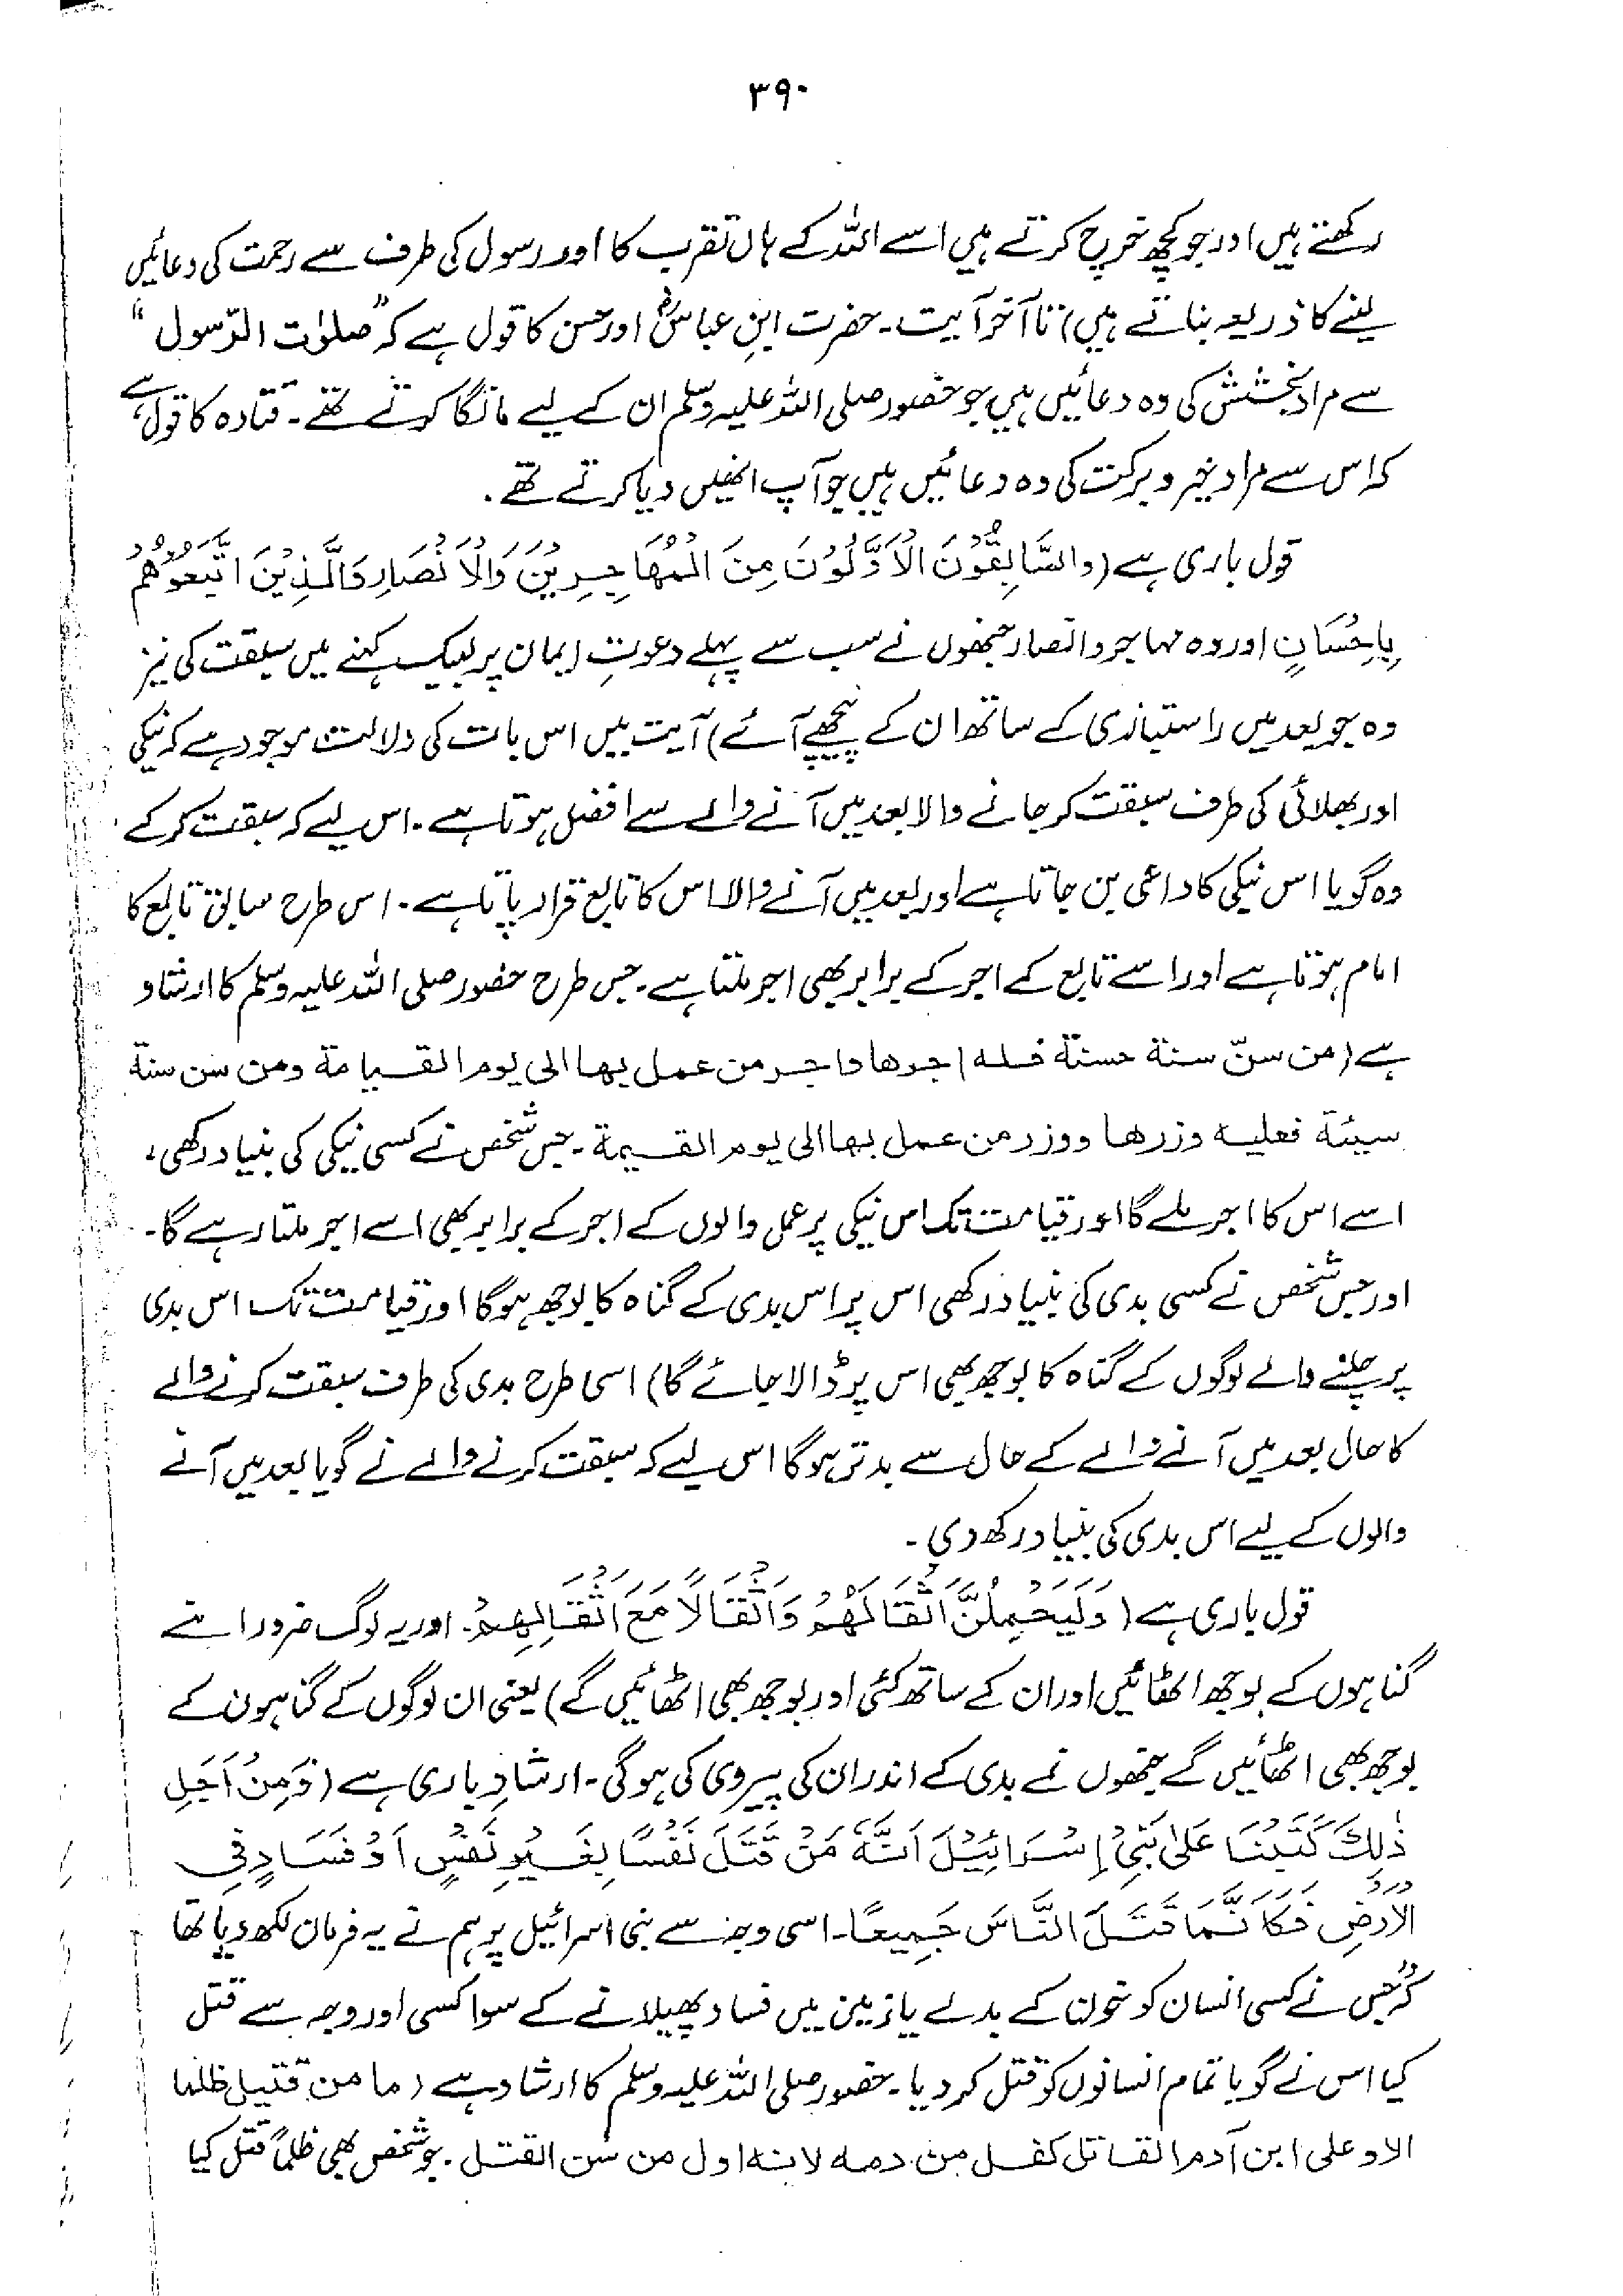 ۳۹۰
رکھتے ہیں اور جو کچھ خرچ کرتے ہیں اسے اللہ کے ہاں تقرب کا اور رسول کی طرف سے رحمت کی دعائیں
لینے کا ذریعہ بناتے ہیں) تا آخر آیت۔ حضرت ابنِ عباسؓ اور حسن کا قول ہے کہ "صلوٰت الرّسول"
سے مراد بخشش کی وہ دعائیں ہیں جو حضور صلی اللہ علیہ وسلم ان کے لیے مانگا کرتے تھے۔ قتادہ کا قول ہے
کہ اس سے مراد خیر و برکت کی وہ دعائیں ہیں جو آپ انھیں دیا کرتے تھے۔
قول باری ہے (وَالسَّابِقُوْنَ الْاَوَّلُوْنَ مِنَ الْمُهَاجِرِيْنَ وَالْاَنْصَارِ وَالَّذِيْنَ اتَّبَعُوْهُمْ
بِاِحْسَانٍ اور وہ مہاجر و انصار جنھوں نے سب سے پہلے دعوتِ ایمان پر لبیک کہنے میں سبقت کی نیز
وہ جو بعد میں راستبازی کے ساتھ ان کے پیچھے آئے) آیت میں اس بات کی دلالت موجود ہے کہ نیکی
اور بھلائی کی طرف سبقت کر جانے والا بعد میں آنے والے سے افضل ہوتا ہے۔ اس لیے کہ سبقت کر کے
وہ گویا اس نیکی کا داعی بن جاتا ہے اور بعد میں آنے والا اس کا تابع قرار پاتا ہے۔ اس طرح سابق تابع کا
امام ہوتا ہے اور اسے تابع کے اجر کے برابر بھی اجر ملتا ہے۔ جس طرح حضور صلی اللہ علیہ وسلم کا ارشاد
ہے (من سنّ سنة حسنة فله اجرها واجر من عمل بها الى يوم القيامة ومن سن سنة
سيئة فعليه وزرها ووزر من عمل بها الى يوم القيمة۔ جس شخص نے کسی نیکی کی بنیاد رکھی،
اسے اس کا اجر ملے گا اور قیامت تک اس نیکی پر عمل والوں کے اجر کے برابر بھی اسے اجر ملتا رہے گا۔
اور جس شخص نے کسی بدی کی بنیاد رکھی اس پر اس بدی کے گناہ کا بوجھ ہوگا اور قیامت تک اس بدی
پر چلنے والے لوگوں کے گناہ کا بوجھ بھی اس پر ڈالا جائے گا) اسی طرح بدی کی طرف سبقت کرنے والے
کا حال بعد میں آنے والے کے حال سے بدتر ہوگا اس لیے کہ سبقت کرنے والے نے گویا بعد میں آنے
والوں کے لیے اس بدی کی بنیاد رکھ دی۔
قول باری ہے (وَلَيَحْمِلُنَّ اَثْقَالَهُمْ وَاَثْقَالًا مَعَ اَثْقَالِهِمْ۔ اور یہ لوگ ضرور اپنے
گناہوں کے بوجھ اٹھائیں اور ان کے ساتھ کئی اور بوجھ بھی اٹھائیں گے) یعنی ان لوگوں کے گناہوں کے
بوجھ بھی اٹھائیں گے جنھوں نے بدی کے اندر ان کی پیروی کی ہوگی۔ ارشادِ باری ہے (وَمِنْ اَجْلِ
ذٰلِكَ كَتَبْنَا عَلٰى بَنِيْ اِسْرَائِيْلَ اَنَّهٗ مَنْ قَتَلَ نَفْسًا بِغَيْرِ نَفْسٍ اَوْ فَسَادٍ فِي
الْاَرْضِ فَكَاَنَّمَا قَتَلَ النَّاسَ جَمِيعًا۔ اسی وجہ سے بنی اسرائیل پر ہم نے یہ فرمان لکھ دیا تھا
کہ "جس نے کسی انسان کو خون کے بدلے یا زمین میں فساد پھیلانے کے سوا کسی اور وجہ سے قتل
کیا اس نے گویا تمام انسانوں کو قتل کر دیا۔ حضور صلی اللہ علیہ وسلم کا ارشاد ہے (ما من قتيل ظلما
الا وعلى ابن آدم القاتل كفل من دمه لانه اول من سن القتل۔ جو شخص بھی ظلماً قتل کیا